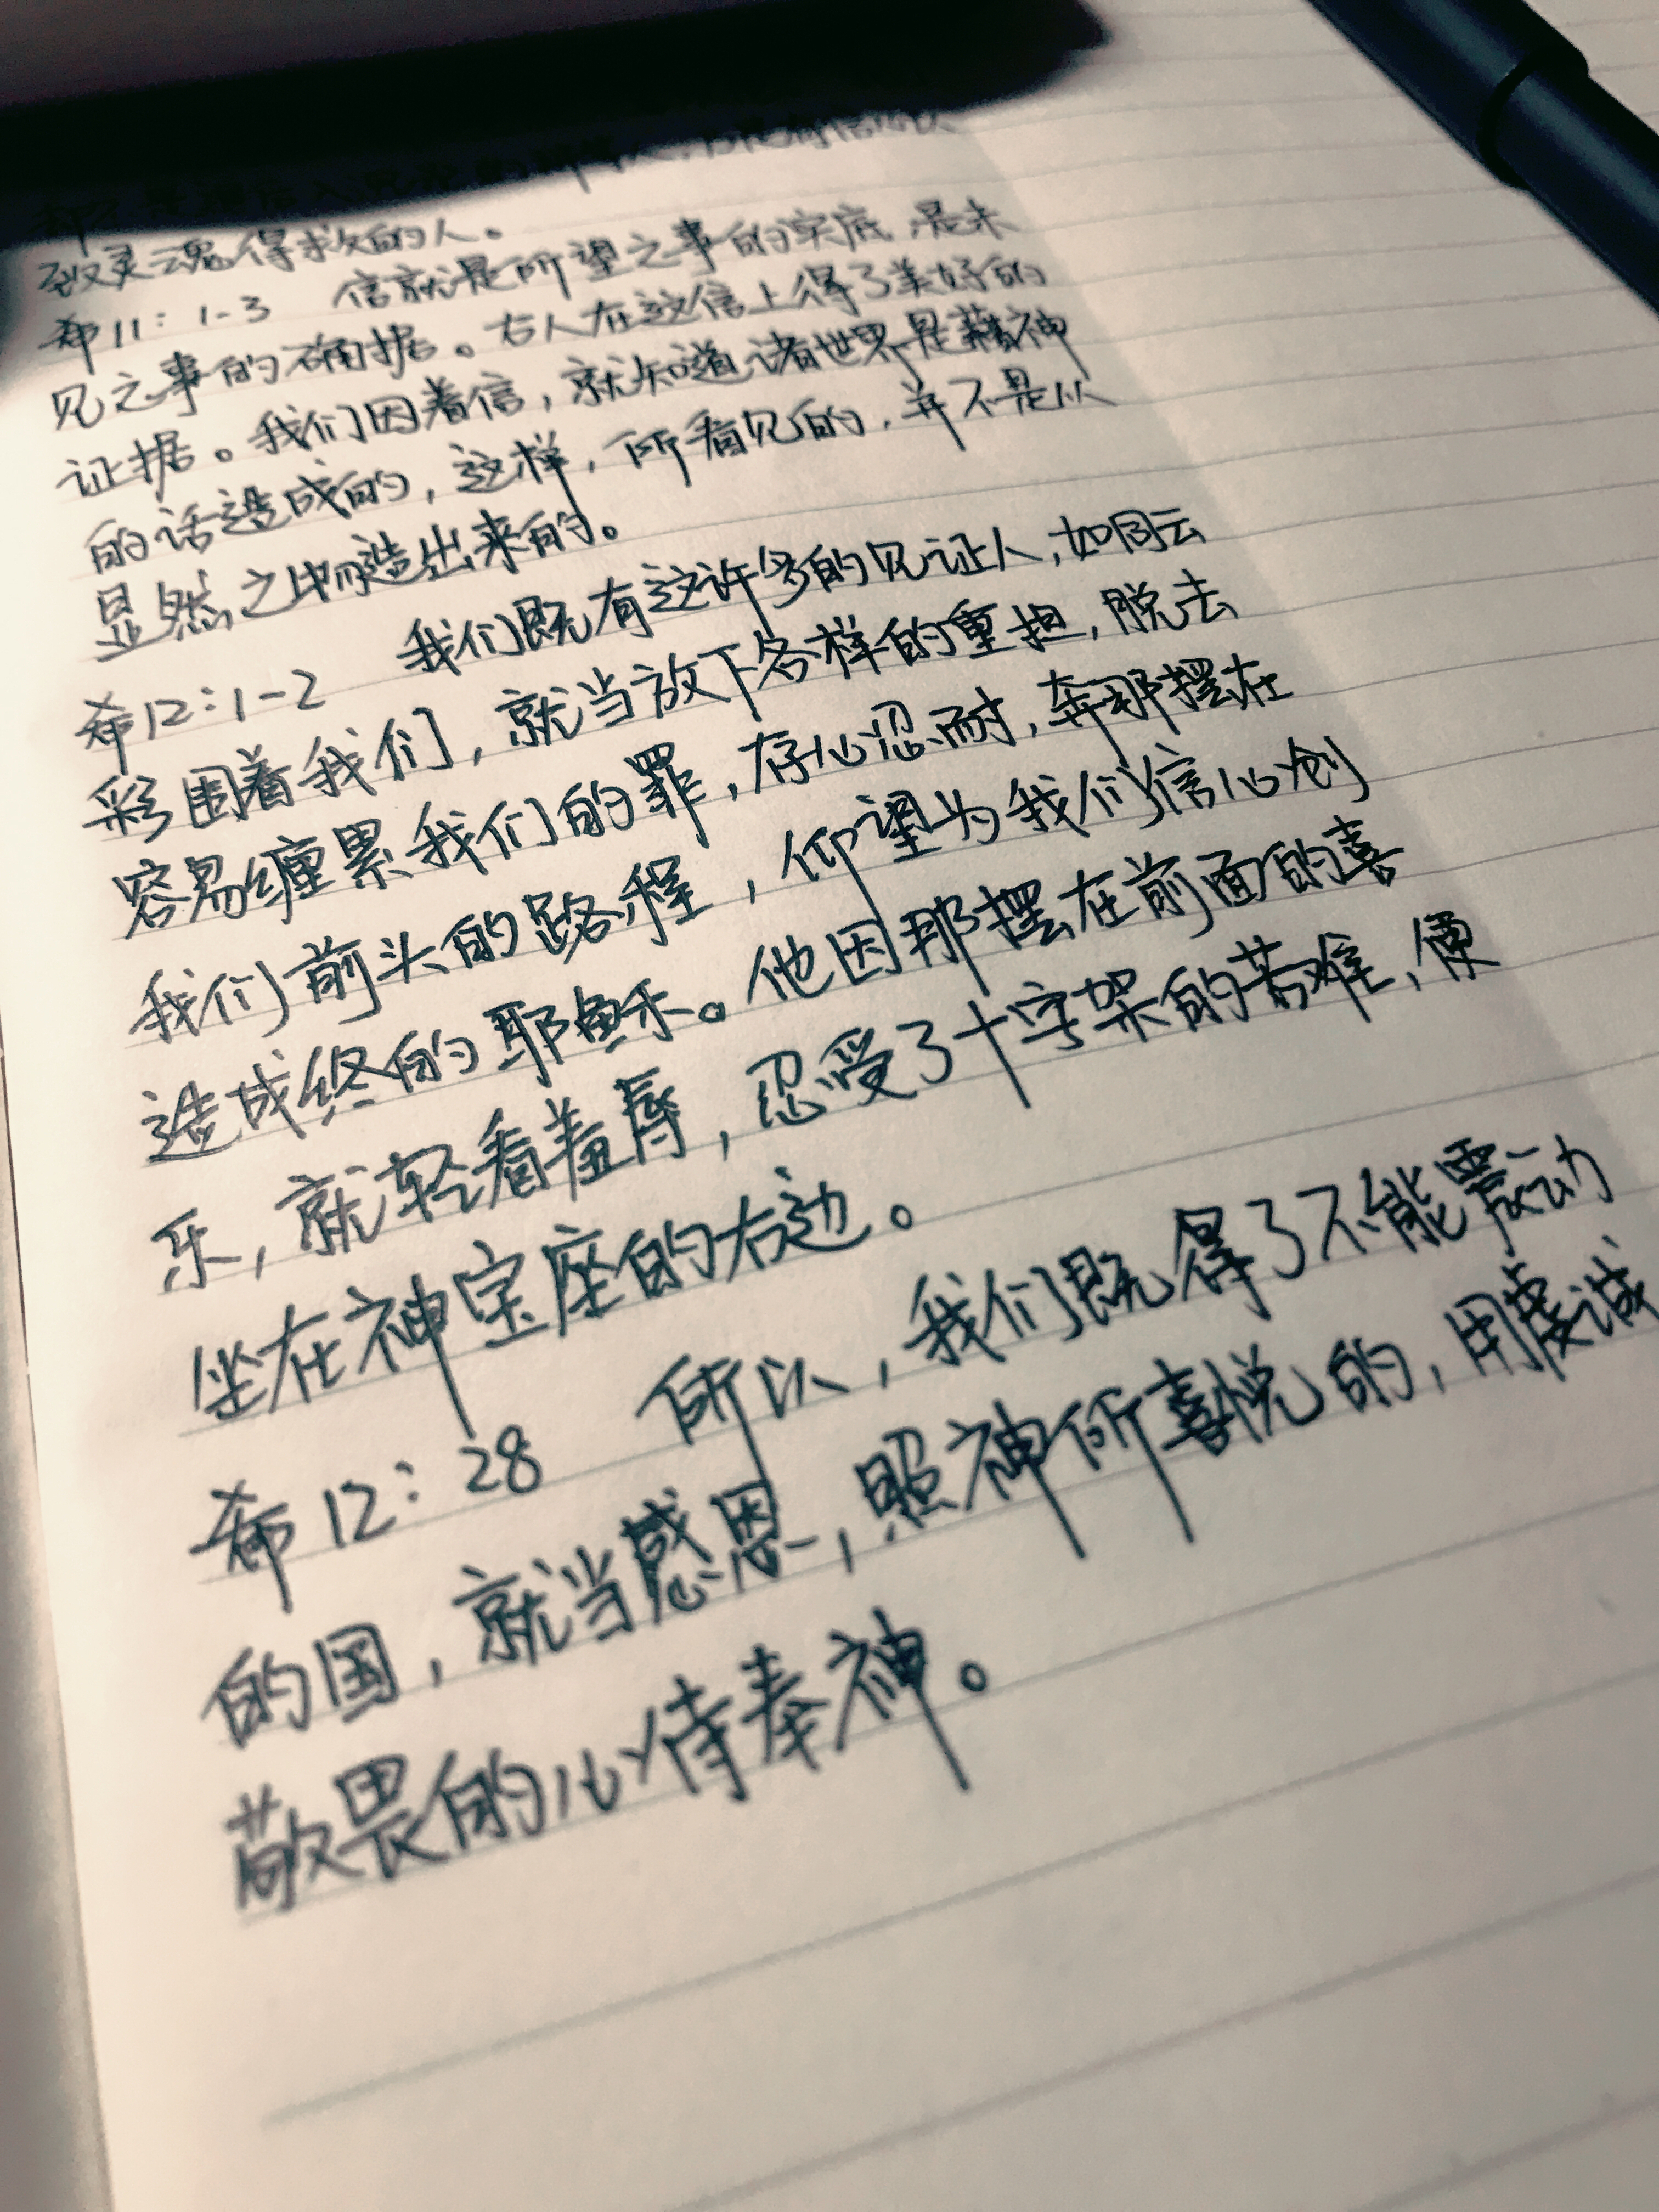 致灵魂得救的人。
希11：1-3 信就是所望之事的实底，是未
见之事的确据。古人在这信上得了美好的
证据。我们因着信，就知道诸世界是藉神
的话造成的，这样，所看见的，并不是从
显然之物造出来的。
希12：1-2 我们既有这许多的见证人，如同云
彩围着我们，就当放下各样的重担，脱去
容易缠累我们的罪，存心忍耐，奔那摆在
我们前头的路程，仰望为我们信心创
造成终的耶稣。他因那摆在前面的喜
乐，就轻看羞辱，忍受了十字架的苦难，便
坐在神宝座的右边。
希12：28 所以，我们既得了不能震动
的国，就当感恩，照神所喜悦的，用虔诚
敬畏的心侍奉神。